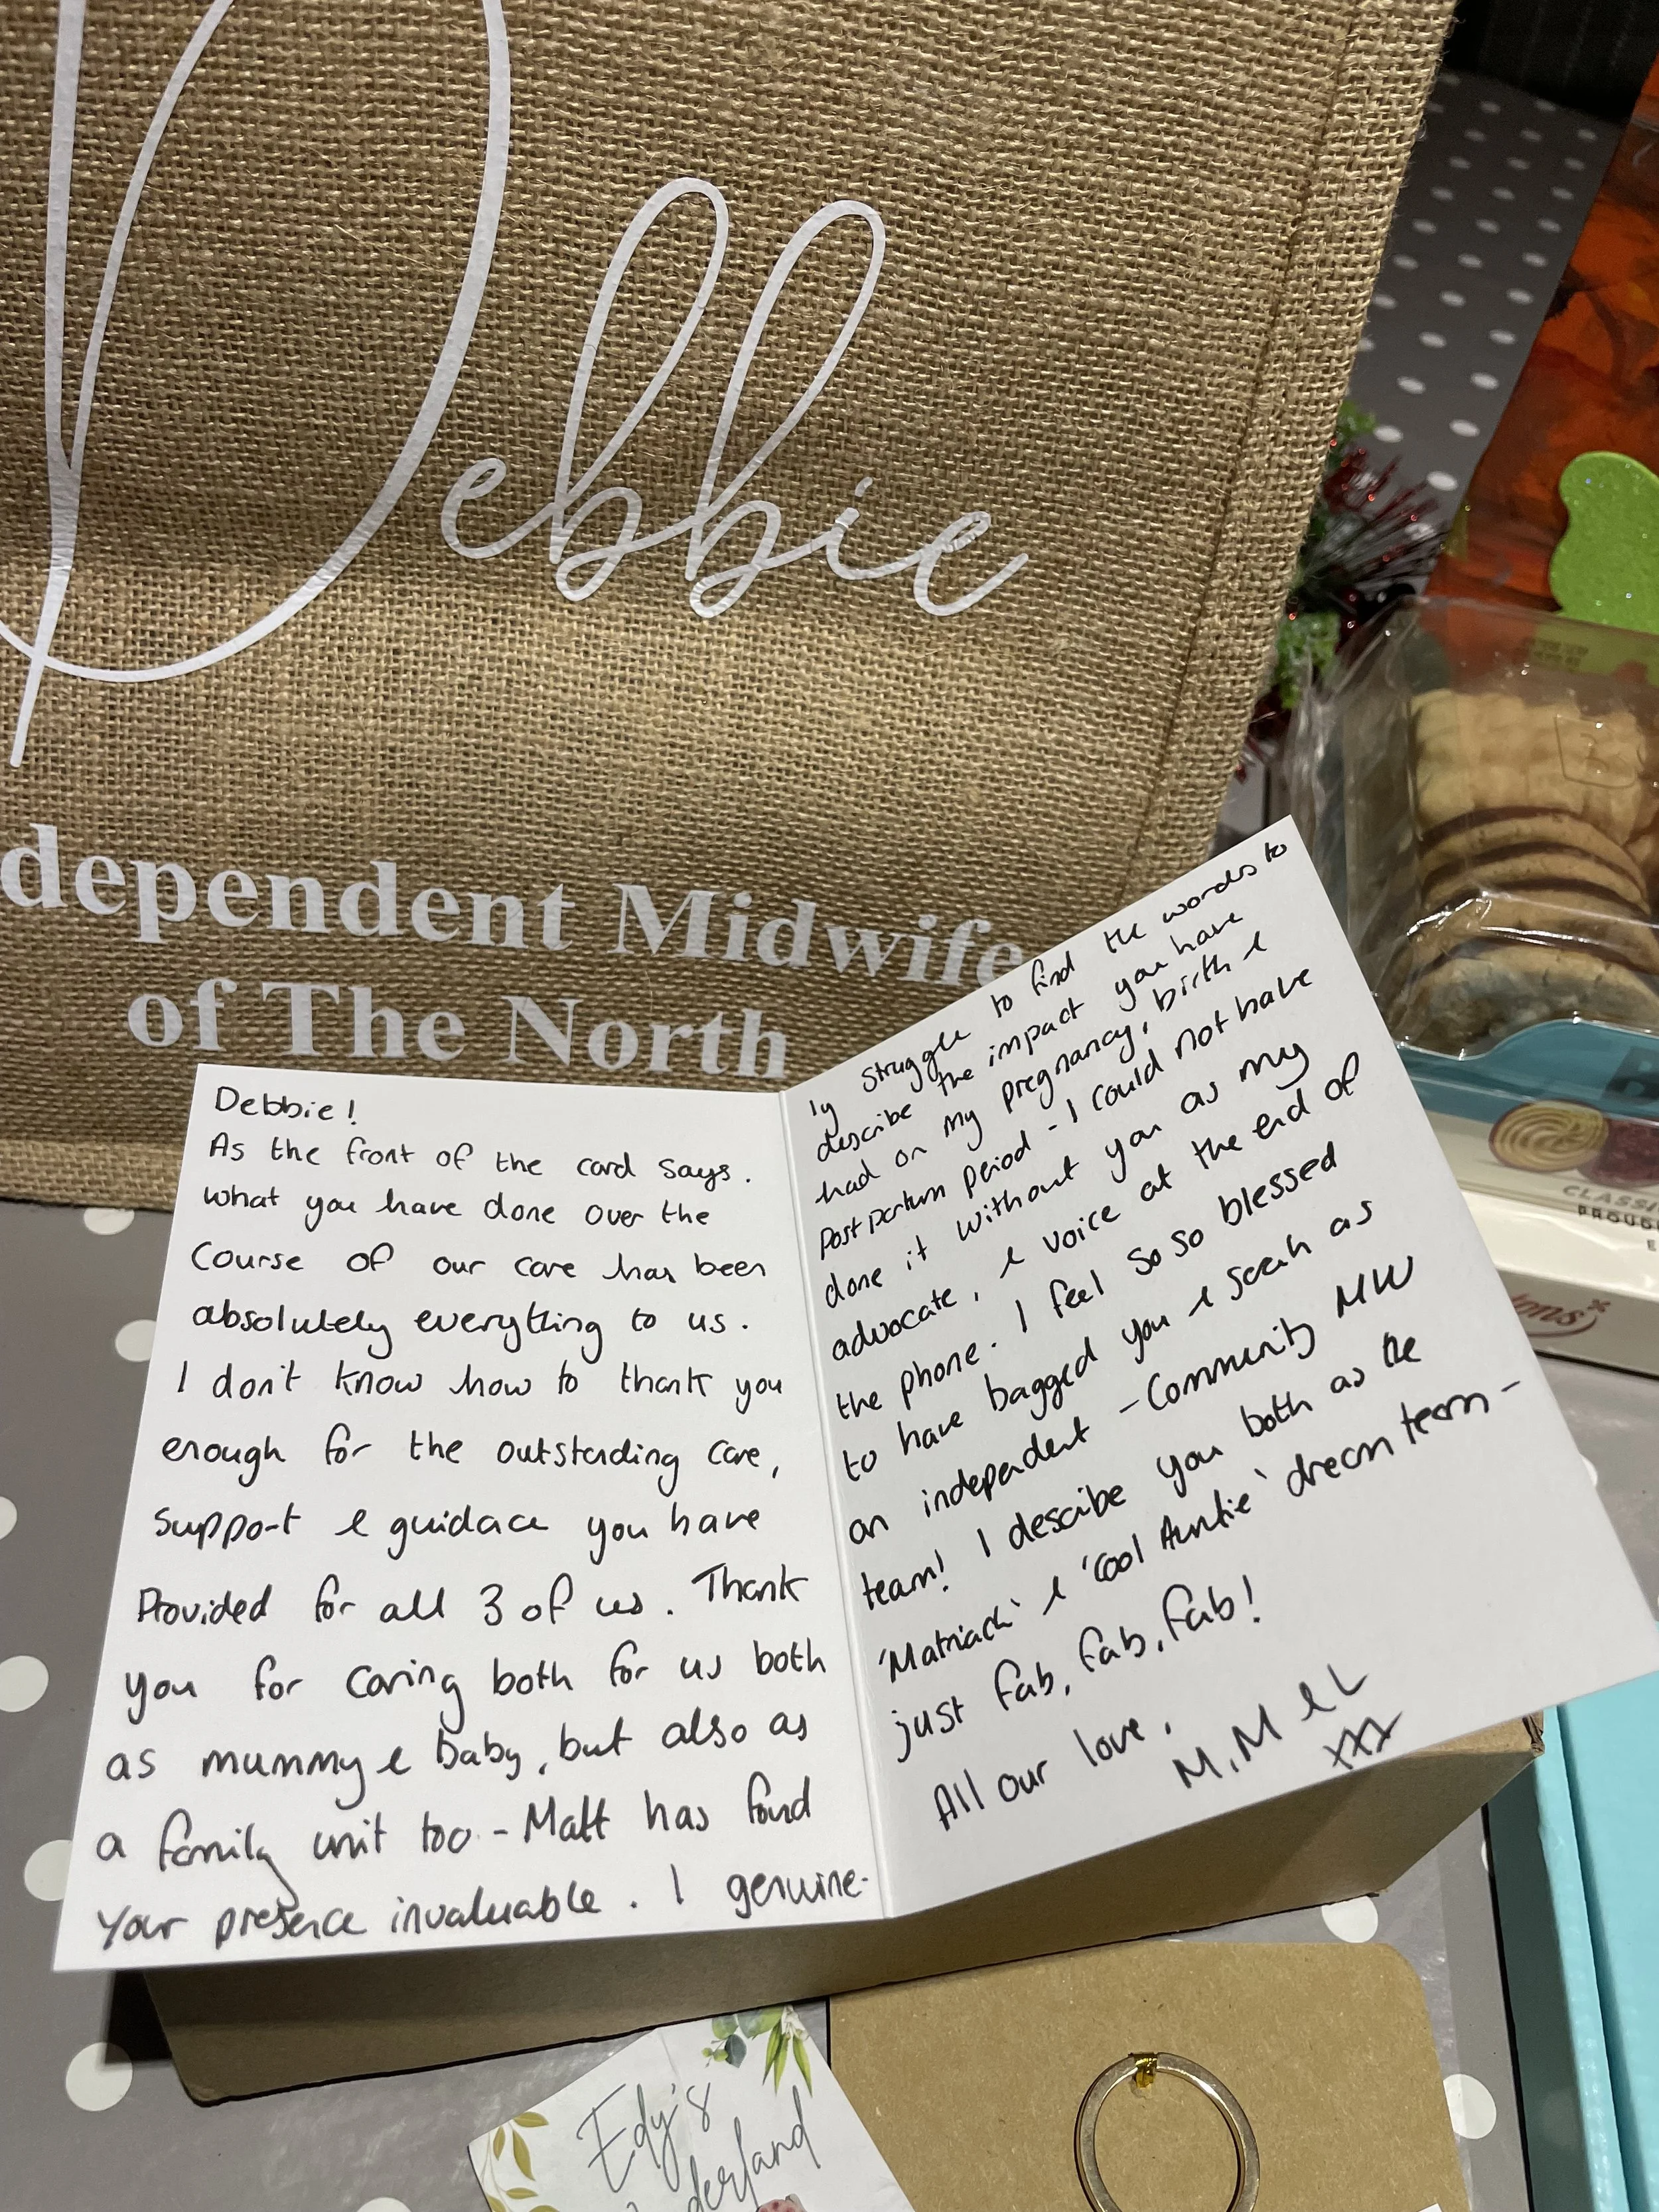 Debbie
dependent Midwife
of The North
Debbie!
As the front of the card says.
what you have done over the
course of our care has been
absolutely everything to us.
I don't know how to thank you
enough for the outstanding care,
support & guidace you have
Provided for all 3 of us. Thank
you for caring both for us both
as mummy & baby, but also as
a family unit too - Matt has found
your presence invaluable. I genuine-
ly struggle to find the words to
describe the impact you have
had on my pregnancy, birth &
post partum period - I could not have
done it without you as my
advocate, & voice at the end of
the phone. I feel so so blessed
to have bagged you & Sarah as
an independent - Community MW
team! I describe you both as the
'Matriach' & 'Cool Auntie' dream team -
just fab, fab, fab!
All our love,
M, M & L
xxx
Edy's
derland
CLASSI
PROUD
E
ons